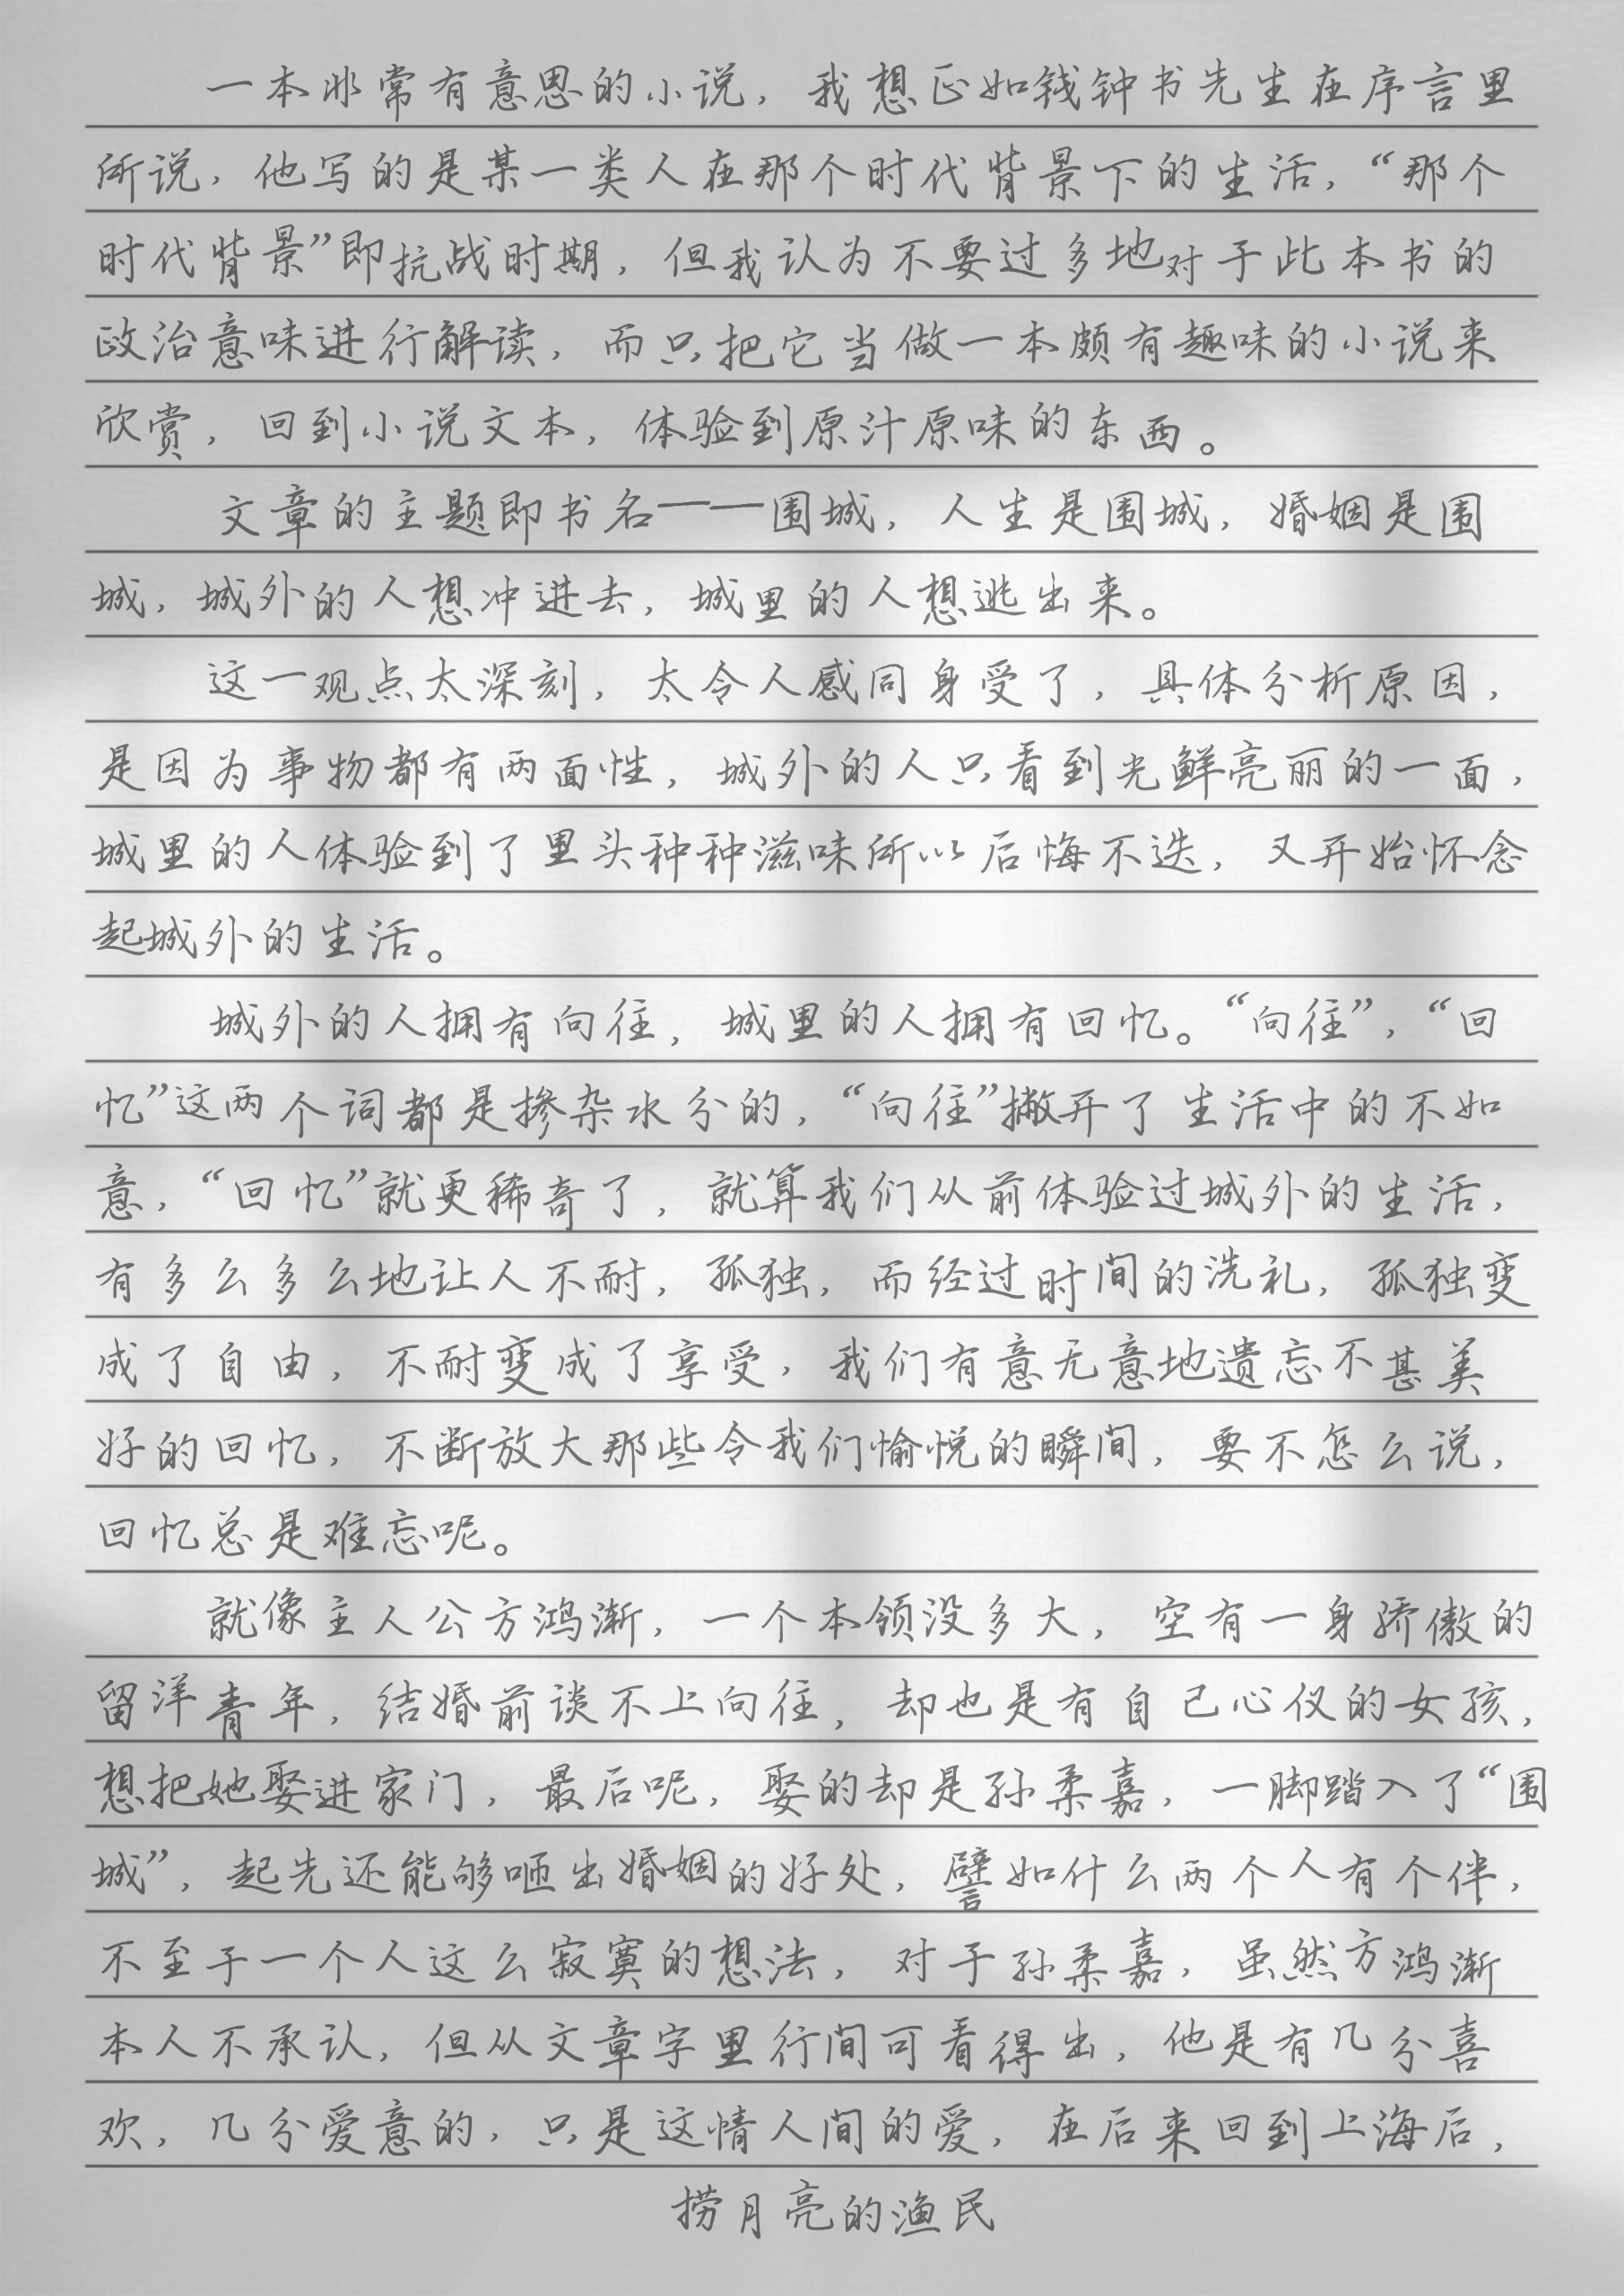 一本非常有意思的小说，我想正如钱钟书先生在序言里
所说，他写的是某一类人在那个时代背景下的生活，“那个
时代背景”即抗战时期，但我认为不要过多地对于此本书的
政治意味进行解读，而只把它当做一本颇有趣味的小说来
欣赏，回到小说文本，体验到原汁原味的东西。
文章的主题即书名——围城，人生是围城，婚姻是围
城，城外的人想冲进去，城里的人想逃出来。
这一观点太深刻，太令人感同身受了，具体分析原因，
是因为事物都有两面性，城外的人只看到光鲜亮丽的一面，
城里的人体验到了里头种种滋味所以后悔不迭，又开始怀念
起城外的生活。
城外的人拥有向往，城里的人拥有回忆。“向往”，“回
忆”这两个词都是掺杂水分的，“向往”撇开了生活中的不如
意，“回忆”就更稀奇了，就算我们从前体验过城外的生活，
有多么多么地让人不耐，孤独，而经过时间的洗礼，孤独变
成了自由，不耐变成了享受，我们有意无意地遗忘不甚美
好的回忆，不断放大那些令我们愉悦的瞬间，要不怎么说，
回忆总是难忘呢。
就像主人公方鸿渐，一个本领没多大，空有一身骄傲的
留洋青年，结婚前谈不上向往，却也是有自己心仪的女孩，
想把她娶进家门，最后呢，娶的却是孙柔嘉，一脚踏入了“围
城”，起先还能够咂出婚姻的好处，譬如什么两个人有个伴，
不至于一个人这么寂寞的想法，对于孙柔嘉，虽然方鸿渐
本人不承认，但从文章字里行间可看得出，他是有几分喜
欢，几分爱意的，只是这情人间的爱，在后来回到上海后，
捞月亮的渔民